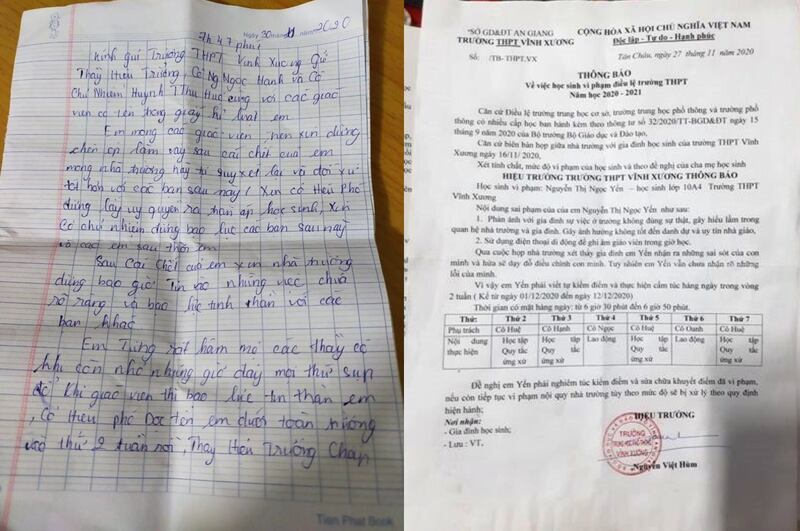 Ngày 30 tháng 11 năm 2020
7h 47 phút
Kính gửi Trường THPT Vĩnh Xương Gửi
Thầy Hiệu Trưởng, Cô Ngọc Hạnh và Cô
Chủ Nhiệm Huỳnh T Thu Huệ cùng với các giáo
viên có tên trong giấy kỉ luật em
Em mong các giáo viên trên xin đừng
chèn ép làm sau cái chết của em
mong nhà trường hãy suy xét lại và đối xử
tốt hơn với các bạn sau này! Xin cô Hiệu Phó
đừng lấy uy quyền ra đàn áp học sinh, xin
Cô chủ nhiệm đừng bạo lực các bạn sau này
và các em sau thôi em.
Sau Cái Chết của em xin nhà trường
đừng bao giờ Tin vào những việc chưa
rõ ràng và bạo lực tinh thần với các
bạn khác
Em Từng rất hâm mộ các thầy cô
khi còn nhỏ nhưng giờ đây mọi thứ sụp
đổ Khi giáo viên thì bạo lực tin thần em
, Cô Hiệu phó Đọc tên em dưới toàn trường
vào thứ 2 tuần rồi, Thầy Hiệu Trưởng Chấp
Tiến Phát Book
SỞ GD&ĐT AN GIANG
TRƯỜNG THPT VĨNH XƯƠNG
Số: /TB-THPT.VX
CỘNG HÒA XÃ HỘI CHỦ NGHĨA VIỆT NAM
Độc lập - Tự do - Hạnh phúc
Tân Châu, ngày 27 tháng 11 năm 2020
THÔNG BÁO
Về việc học sinh vi phạm điều lệ trường THPT
Năm học 2020 - 2021
Căn cứ Điều lệ trường trung học cơ sở, trường trung học phổ thông và trường phổ
thông có nhiều cấp học ban hành kèm theo thông tư số 32/2020/TT-BGD&ĐT ngày 15
tháng 9 năm 2020 của Bộ trưởng Bộ Giáo dục và Đào tạo,
Căn cứ biên bản họp giữa nhà trường với gia đình học sinh của trường THPT Vĩnh
Xương ngày 16/11/2020,
Xét tính chất, mức độ vi phạm của học sinh và theo đề nghị của cha mẹ học sinh
HIỆU TRƯỞNG TRƯỜNG THPT VĨNH XƯƠNG THÔNG BÁO
Học sinh vi phạm: Nguyễn Thị Ngọc Yến – học sinh lớp 10A4 Trường THPT
Vĩnh Xương
Nội dung sai phạm của của em Nguyễn Thị Ngọc Yến như sau:
1. Phản ánh với gia đình sự việc ở trường không đúng sự thật, gây hiểu lầm trong
quan hệ nhà trường và gia đình. Gây ảnh hưởng không tốt đến danh dự và uy tín nhà giáo,
2. Sử dụng điện thoại di động để ghi âm giáo viên trong giờ học.
Qua cuộc họp nhà trường xét thấy gia đình em Yến nhận ra những sai sót của con
mình và hứa sẽ dạy dỗ điều chỉnh con mình. Tuy nhiên em Yến vẫn chưa nhận rõ những
lỗi của mình.
Vì vậy em Yến phải viết tự kiểm điểm và thực hiện cấm túc hàng ngày trong vòng
2 tuần ( Kể từ ngày 01/12/2020 đến ngày 12/12/2020)
Thời gian có mặt hàng ngày: từ 6 giờ 30 phút đến 6 giờ 50 phút.
Thứ: Thứ 2 Thứ 3 Thứ 4 Thứ 5 Thứ 6 Thứ 7
Phụ trách Cô Huệ Cô Hạnh Cô Ngọc Cô Huệ Cô Oanh Cô Huệ
Nội dung Học tập Học tập Lao động Học tập Lao động Học tập
thực hiện Quy tắc Quy tắc Quy tắc Quy tắc
ứng xử ứng xử ứng xử ứng xử
Đề nghị em Yến phải nghiêm túc kiểm điểm và sửa chữa khuyết điểm đã vi phạm,
nếu còn tiếp tục vi phạm nội quy nhà trường tùy theo mức độ sẽ bị xử lý theo quy định
hiện hành;
Nơi nhận:
- Gia đình học sinh;
- Lưu : VT.
HIỆU TRƯỞNG
TRƯỜNG
TRUNG HỌC PHỔ THÔNG
VĨNH XƯƠNG
Nguyễn Việt Hùm